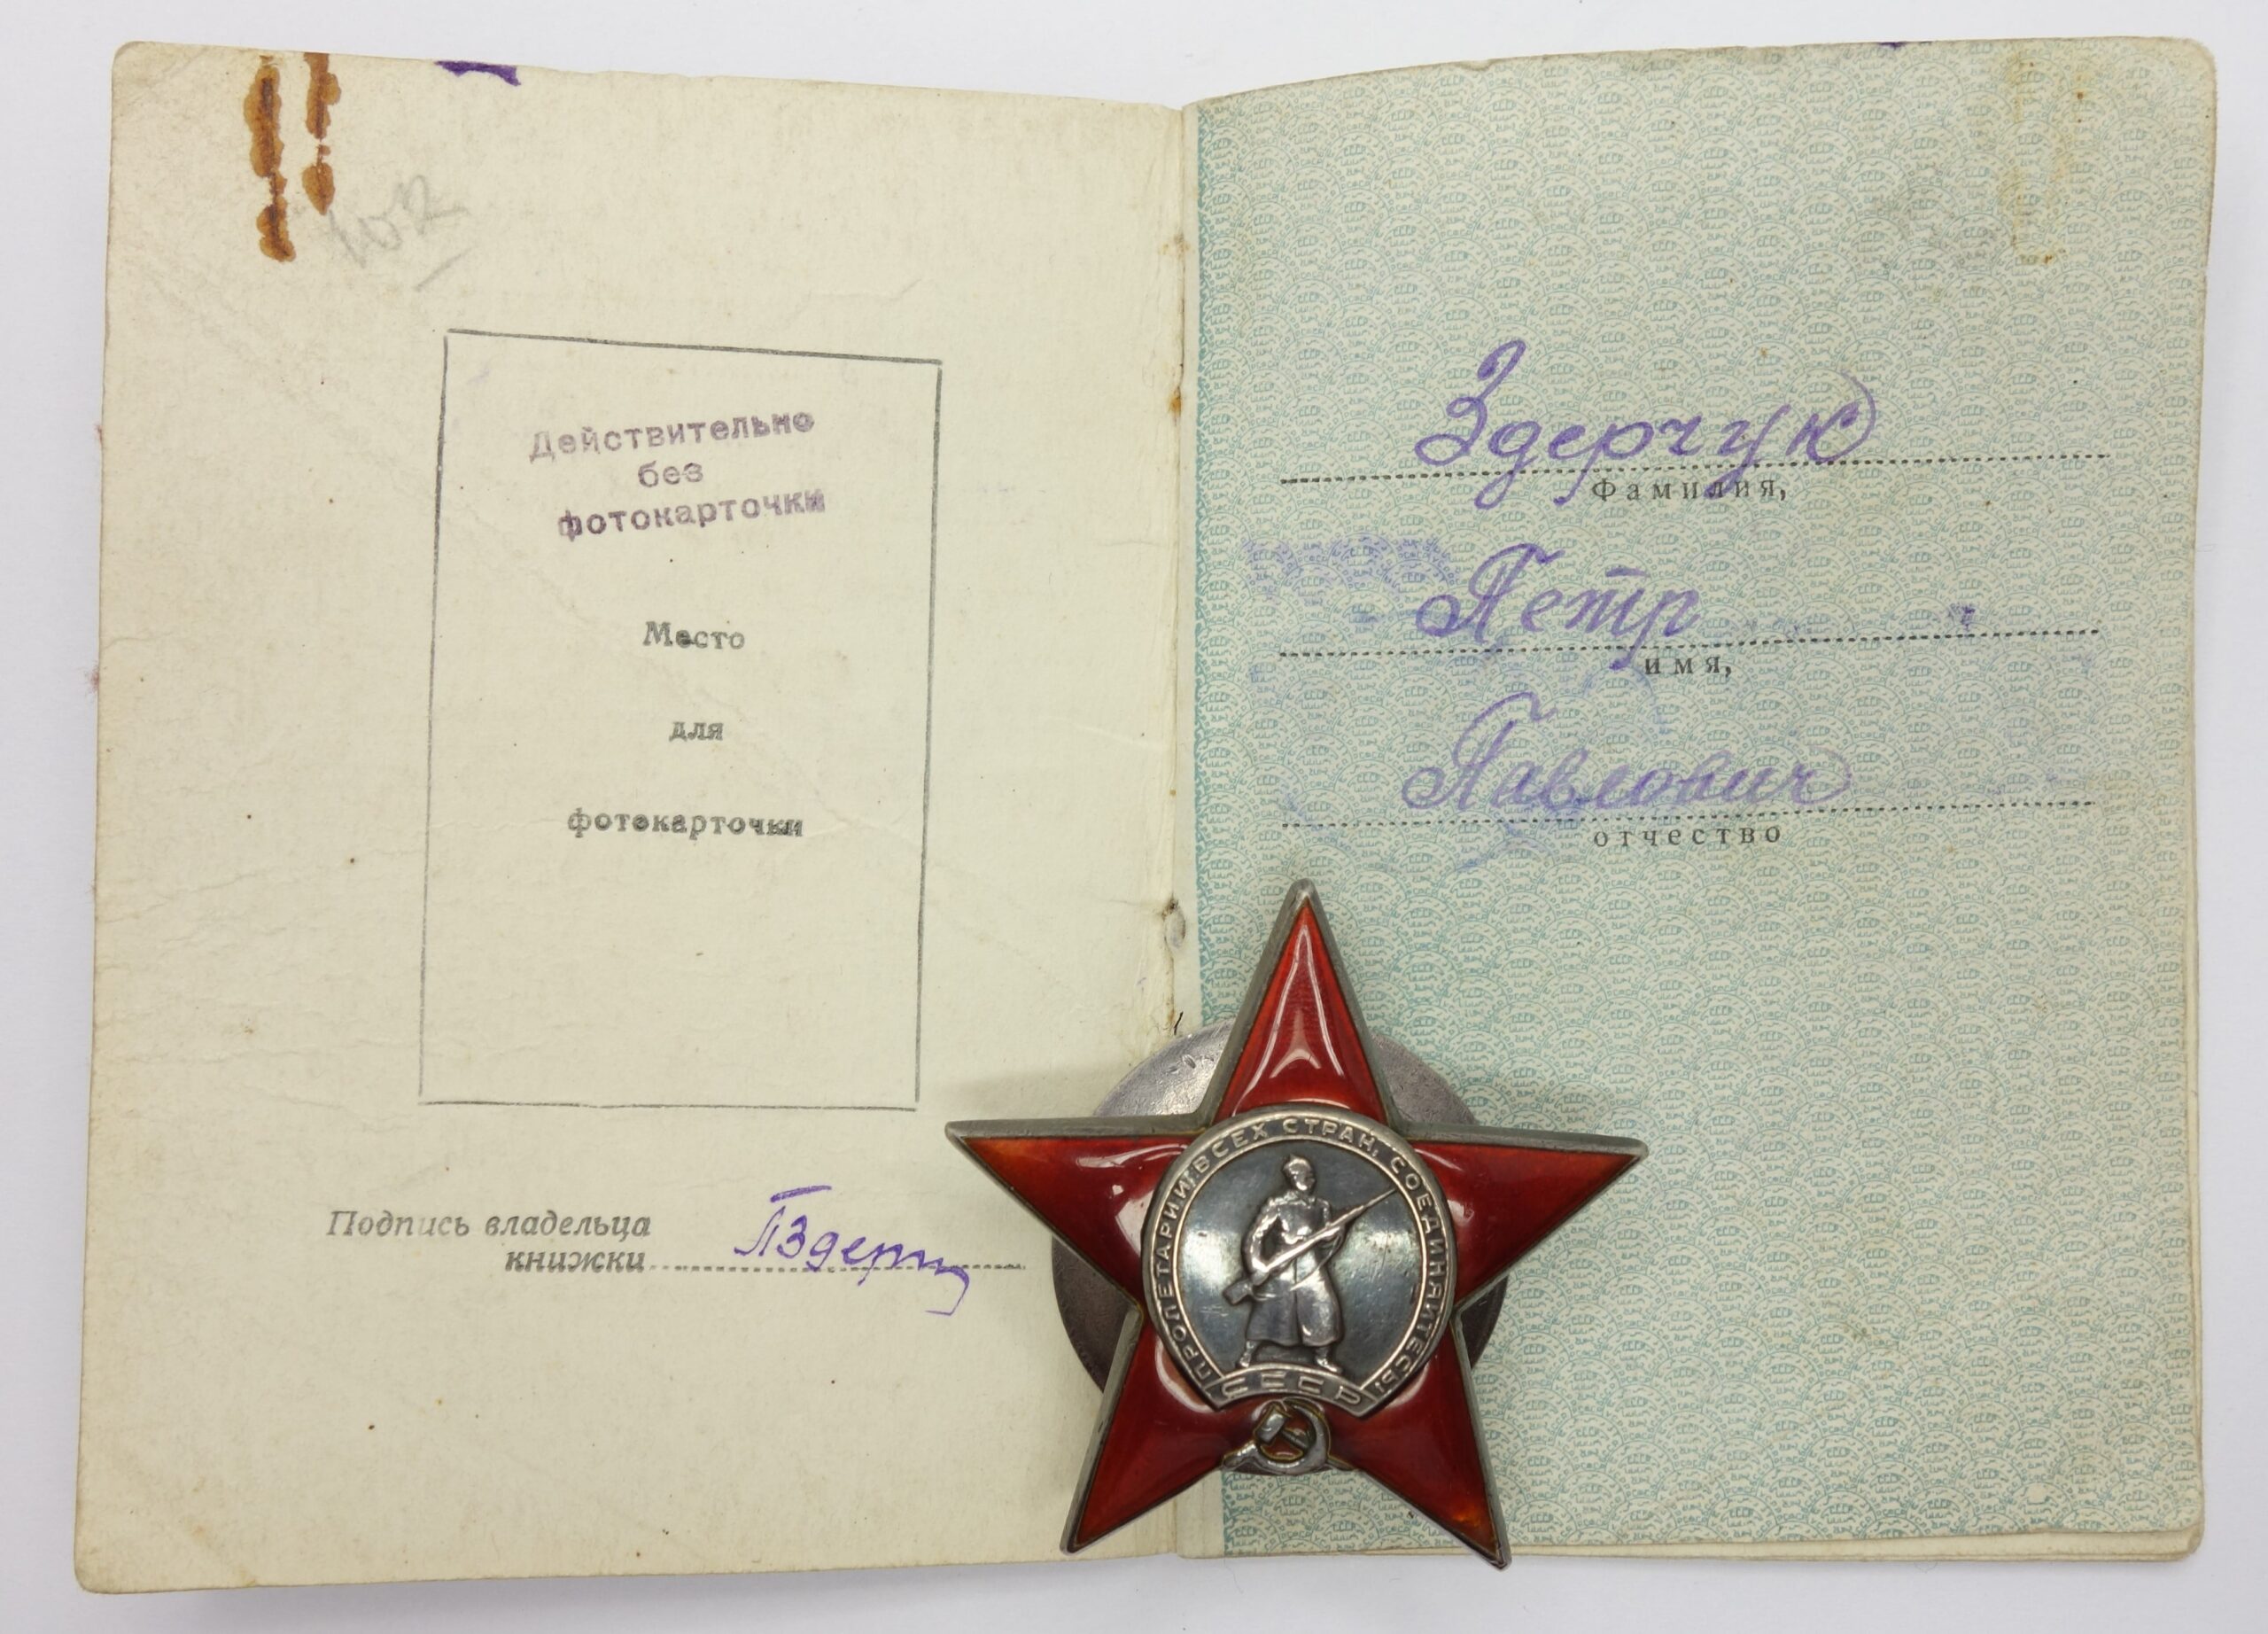 Действительно
без
фотокарточки
Место
для
фотокарточки
Подпись владельца
книжки
Здерчук
Фамилия,
Петр
имя,
Павлович
отчество
ПРОЛЕТАРИИ ВСЕХ СТРАН, СОЕДИНЯЙТЕСЬ!
СССР